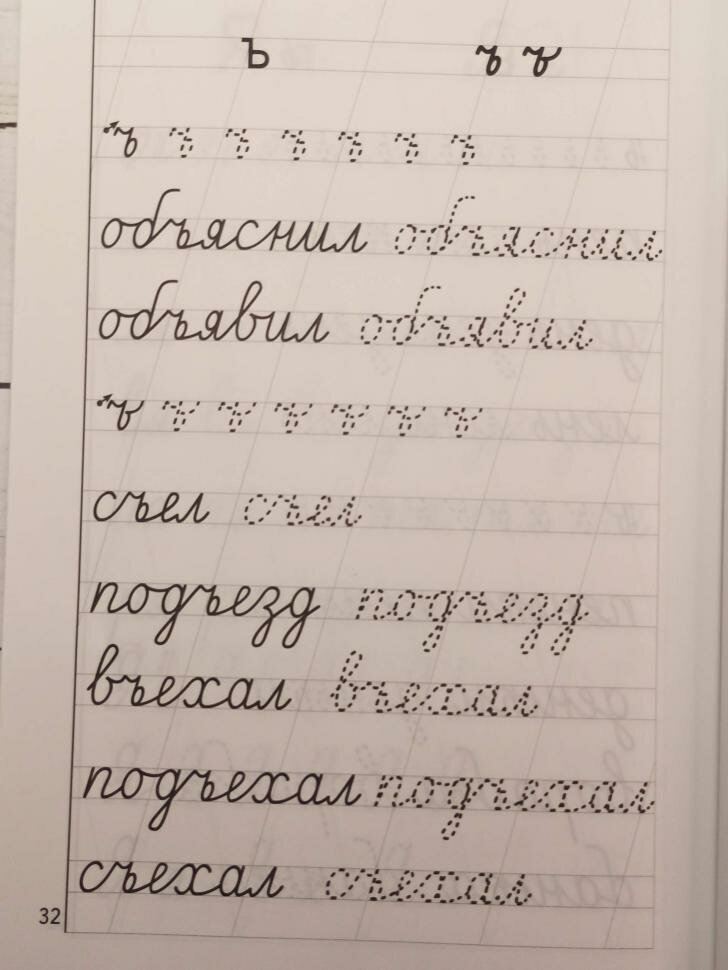 ъ ъ ъ
ъ ъ ъ ъ ъ ъ ъ
объяснил объяснил
объявил объявил
ъ ъ ъ ъ ъ ъ ъ
съел съел
подъезд подъезд
въехал въехал
подъехал подъехал
съехал съехал
32